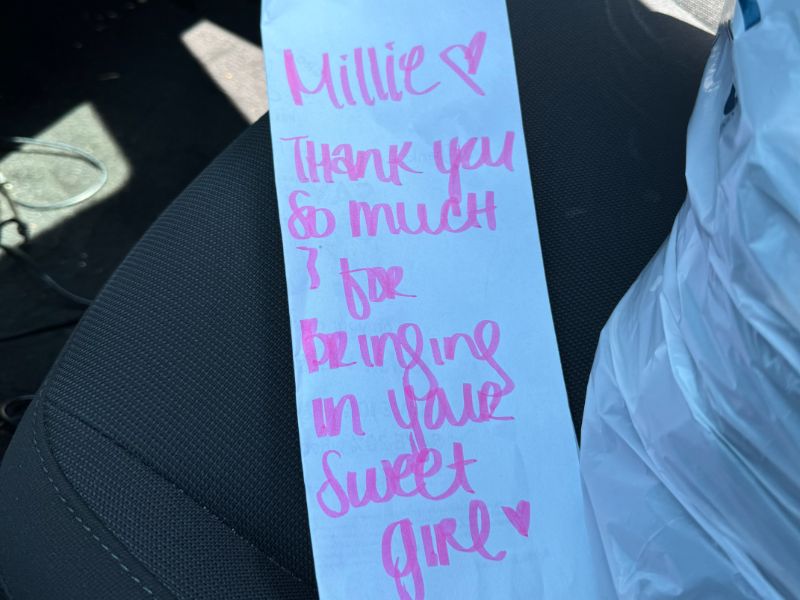 Millie ♡
THank you
So much
& for
bringing
in your
sweet
girl ♥